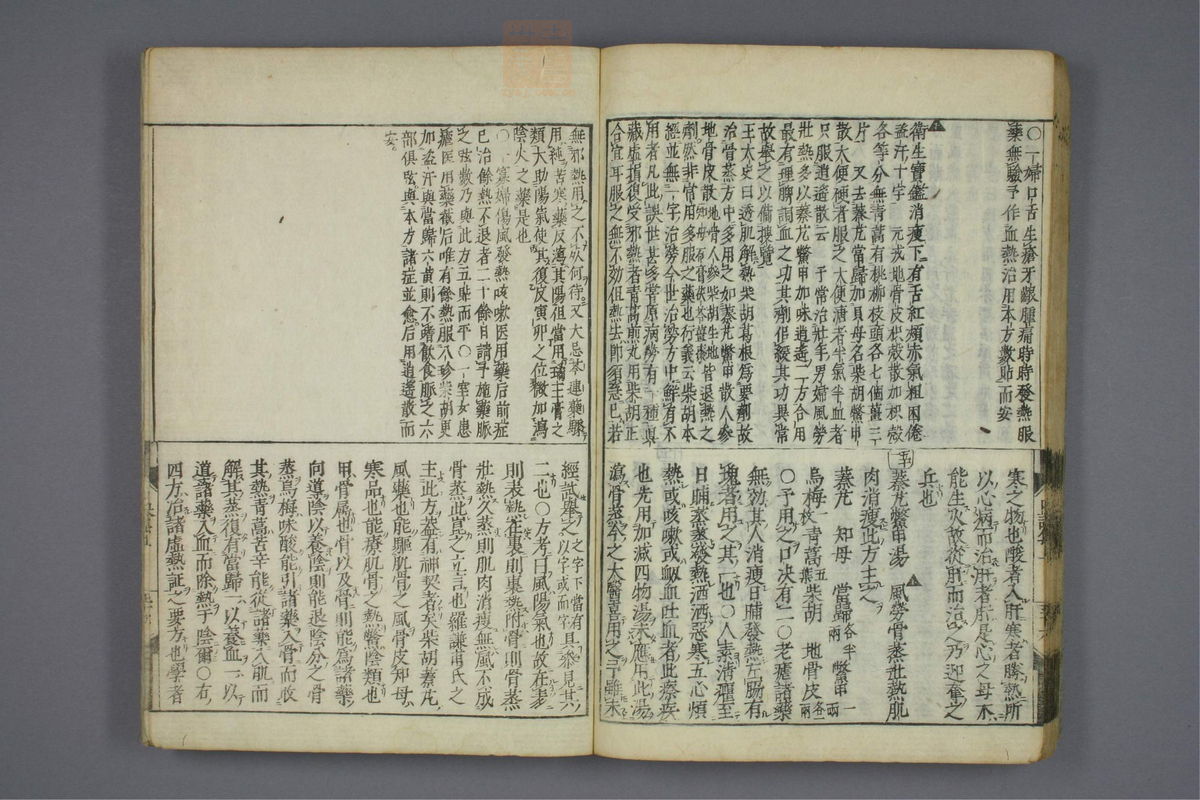 〇一婦口舌生瘡牙齦腫痛時時發熱服
藥無驗予作血熱治用本方數貼而安
衛生寶鑑消瘦下有舌紅頰赤氣粗困倦
盗汗十字 元戎地骨皮枳殻散加枳殻
各等分無青蒿有桃柳枝頭各七個薑三
片 又去蓁艽當歸加貝母名柴胡鱉甲
散大便硬者服之大便溏者半氣半血者
只服逍遥散云 予常治壯年男婦風勞
壯熱多以蓁艽鱉甲加味逍遥二方合用
最有理脾調血之功其劑但緩其功異常
故擧之以備捜覽
王太史曰透肌解熱柴胡葛根為要劑故
治骨蒸方中多用之如蓁艽鱉甲散人參
地骨皮散 皆退熱之
劑然非常用多服之藥也行義云柴胡本
經並無一字治勞今世治勞方中鮮有不
用者凡此誤世甚多嘗原病勞有一種真
藏虛損復受邪熱者青蒿煎丸用柴胡正
合宜耳服之無不効但熱去即須急已若
寒之物也酸者入肝寒者勝熱所
以心病而治肝者肝是心之母木
能生火故從肝而治之乃迎奪之
兵也
蓁艽鱉甲湯 風勞骨蒸壯熱肌
肉消瘦此方主之
蓁艽 知母 當歸各半兩 鱉甲一兩
烏梅一枚 青蒿五葉 柴胡 地骨皮各一兩
〇予用之口决有二〇老瘧諸藥
無効其人消瘦日晡發熱左腸有
塊者用之其一也〇人素清癯至
日晡蒸蒸發熱洒洒惡寒五心煩
熱或咳嗽或衂血吐血者此療疾
也先用加減四物湯未應用此湯
瀉骨蒸今之大醫喜用之予雖未
無邪熱用之不灰何待又大忌芩連蘗驟
用純苦寒藥反瀉其陽但當用瓊玉膏之
類大助陽氣使其復皮寅卯之位微加瀉
陰火之藥是也
〇一寡婦傷風發熱咳嗽医用藥后前症
已治餘熱不退者二十餘日請予施藥脉
之弦數乃與此方五貼而平〇一室女患
瘧医用藥截后唯有餘熱服小柴胡更
加盗汗與當歸六黄則不嗜飲食脉之六
部倶弦與本方諸症並愈后用逍遥散而
安
經試擧之之字下當有且
二也〇方考曰風陽氣也故在表
則表熱在裏則裏熱附骨則骨蒸
壯熱久蒸則肌肉消瘦無風不成
骨蒸此崑之立言也羅謙甫氏之
主此方盖有神契者矣柴胡蓁艽
風藥也能驅肌骨之風骨皮知母
寒品也能療肌骨之熱鱉陰類也
甲骨属也骨以及骨則能為諸藥
向導陰以養陰則能退陰分之骨
蒸烏梅味酸能引諸藥入骨而收
其熱青蒿苦辛能從諸藥入肌而
解其蒸復有當歸一以養血一以
道諸藥入血而除熱于陰爾〇右
四方治諸虛熱証之要方也學者